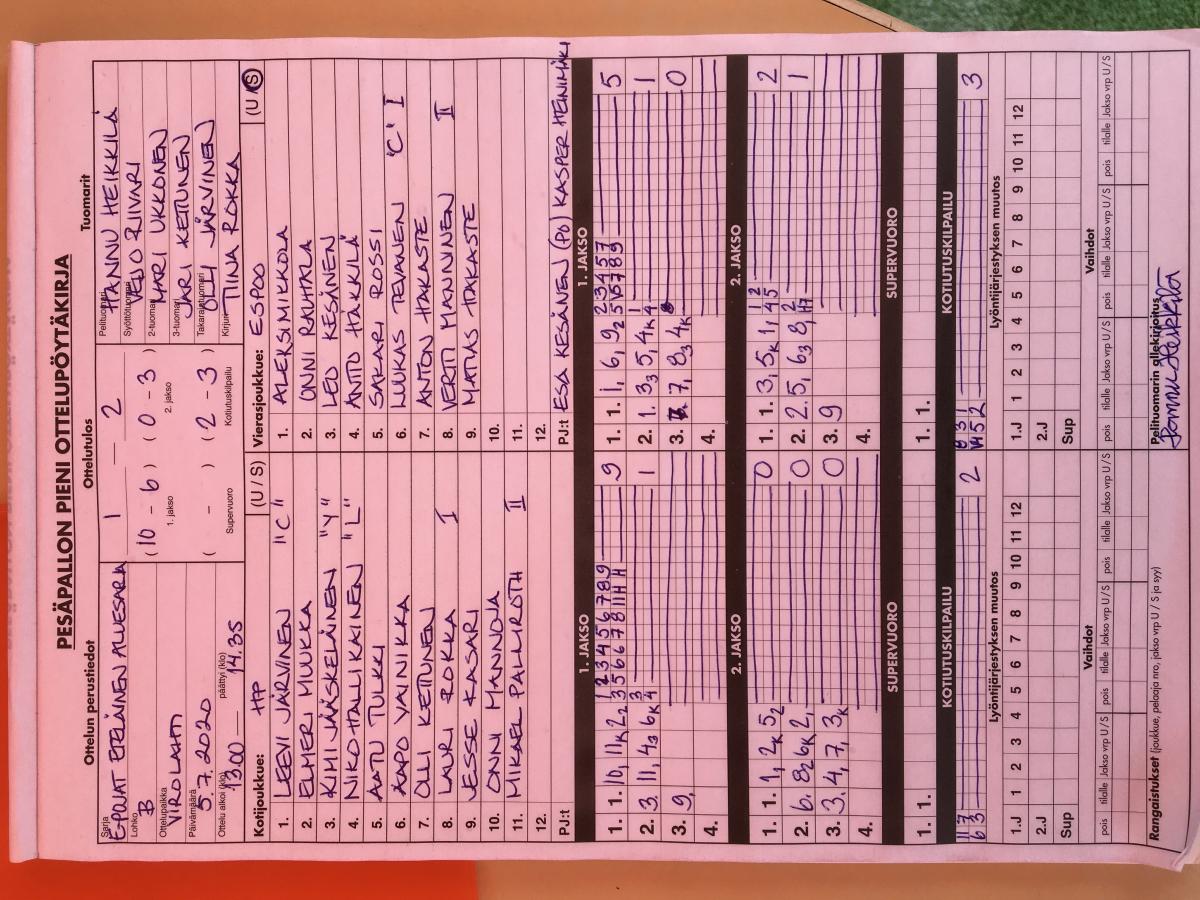 PESÄPALLON PIENI OTTELUPÖYTÄKIRJA
Ottelun perustiedot
Sarja
E-POJAT ETELÄINEN ALUESARJA
Lohko
B
Ottelupaikka
VIROLAHTI
Päivämäärä
5.7.2020
Ottelu alkoi (klo) päättyi (klo)
13.00 14.35
Ottelutulos
1 — 2
(10 - 6) (0 - 3)
1. jakso 2. jakso
( - ) (2 - 3)
Supervuoro Kotiutuskilpailu
Tuomarit
Pelituomari HANNU HEIKKILÄ
Syöttötuomari
2-tuomari MARI UKKONEN
3-tuomari JARI KETTUNEN
Takarajatuomari OLLI JÄRVINEN
Kirjuri TIINA ROKKA
Kotijoukkue: HP (U / S)
1. LEEVI JÄRVINEN "C"
2. ELMER MUUKKA
3. KIMI JÄÄSKELÄINEN "Y"
4. NIKO HALLIKAINEN "L"
5. AATU TULKKI
6. AAPO VAINIKKA
7. OLLI KETTUNEN
8. LAURI ROKKA I
9. JESSE KASARI
10. ONNI MANNOJA
11. MIKAEL PALLIROTH II
12.
PJ:t
Vierasjoukkue: ESPOO (U / S)
1. ALEKSI MIKKOLA
2. ONNI RAUHALA
3. LEO KESÄNEN
4. ANTTO HAKKILA
5. SAKARI ROSSI
6. LUUKAS TEVANEN "C" I
7. ANTON HAKASTE
8. VERTTI MANNINEN II
9. MATIAS HAKASTE
10.
11.
12.
PJ:t ESA KESÄNEN (PJ) KASPER HEINIMÄKI
1. JAKSO
1. 1. 10, 11K 2 2 9
2. 3, 11, 4 3 6K 1
3. 9,
4.
1. JAKSO
1. 1. 1, 6, 9 2 5
2. 1. 3 3 5, 4K 1
3. 7, 8 3 4K 0
4.
2. JAKSO
1. 1. 1, 2K 5 2 0
2. 6. 8 2 6K 2, 0
3. 3. 4, 7, 3K 0
4.
2. JAKSO
1. 1. 3, 5K 1, 2
2. 2. 5, 6 3 8, 1
3. 9
4.
SUPERVUORO
1. 1.
SUPERVUORO
1. 1.
KOTIUTUSKILPAILU
2
KOTIUTUSKILPAILU
3
Lyöntijärjestyksen muutos
1.J 1 2 3 4 5 6 7 8 9 10 11 12
2.J
Sup
Lyöntijärjestyksen muutos
1.J 1 2 3 4 5 6 7 8 9 10 11 12
2.J
Sup
Vaihdot
pois tilalle Jakso vrp U / S pois tilalle Jakso vrp U / S pois tilalle Jakso vrp U / S
Vaihdot
pois tilalle Jakso vrp U / S pois tilalle Jakso vrp U / S pois tilalle Jakso vrp U / S
Rangaistukset (joukkue, pelaaja nro, jakso vrp U / S ja syy)
Pelituomarin allekirjoitus